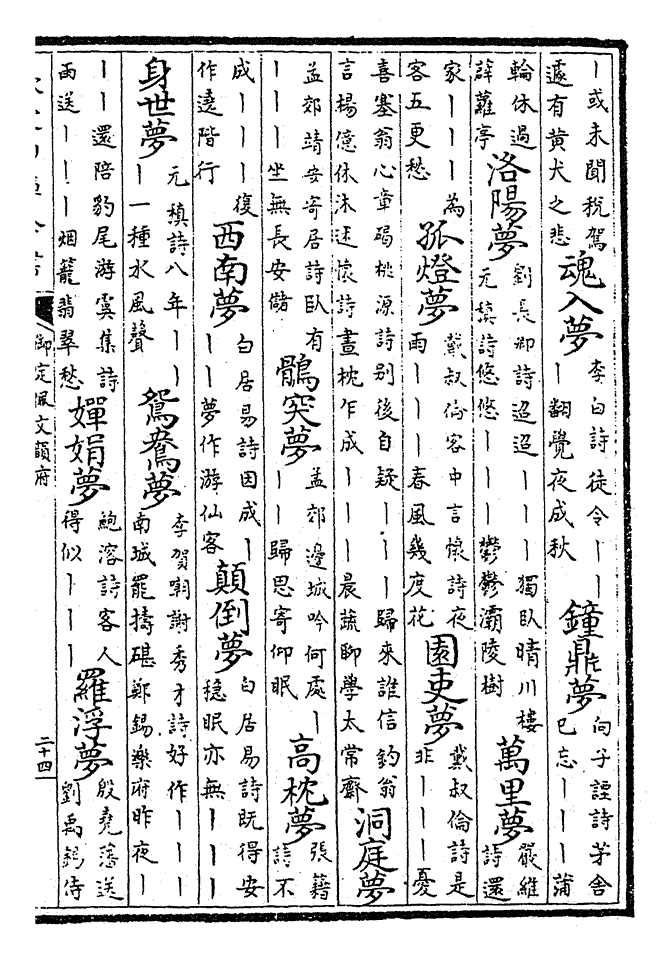 ｜或未聞稅駕
遽有黃犬之悲
魂入夢
李白詩徒令｜｜
｜翻覺夜成秋
鐘鼎夢
向子諲詩茅舍
已忘｜｜｜蒲
輪休過
薜蘿亭
洛陽夢
劉長卿詩迢迢｜｜｜獨臥晴川樓
元稹詩悠悠｜｜｜鬱鬱灞陵樹
萬里夢
嚴維
詩還
家｜｜｜為
客五更愁
孤燈夢
戴叔倫客中言懷詩夜
雨｜｜｜春風幾度花
園吏夢
戴叔倫詩是
非｜｜｜｜憂
喜塞翁心章碣桃源詩別後自疑｜｜｜歸來誰信釣翁
言楊億休沐述懷詩晝枕乍成｜｜｜晨蔬聊學太常齋
洞庭夢
孟郊靖安寄居詩臥有
｜｜｜坐無長安儲
鶻突夢
孟郊邊城吟何處｜
｜｜歸思寄仰眠
高枕夢
張籍
詩不
成｜｜｜復
作遶階行
西南夢
白居易詩因成｜
｜｜夢作游仙客
顛倒夢
白居易詩既得安
穩眠亦無｜｜｜
身世夢
元稹詩八年｜｜
｜一種水風聲
鴛鴦夢
李賀嘲謝秀才詩好作｜｜｜
南城罷擣碪鄭錫樂府昨夜｜
｜｜還陪豹尾游虞集詩
雨送｜｜｜烟籠翡翠愁
嬋娟夢
鮑溶詩客人
得似｜｜｜
羅浮夢
殷堯藩送
劉禹錫侍
御定佩文韻府
二十四